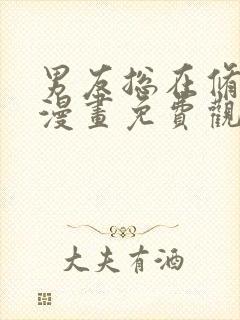 男友总在偷
漫畫免費觀
大夫有酒